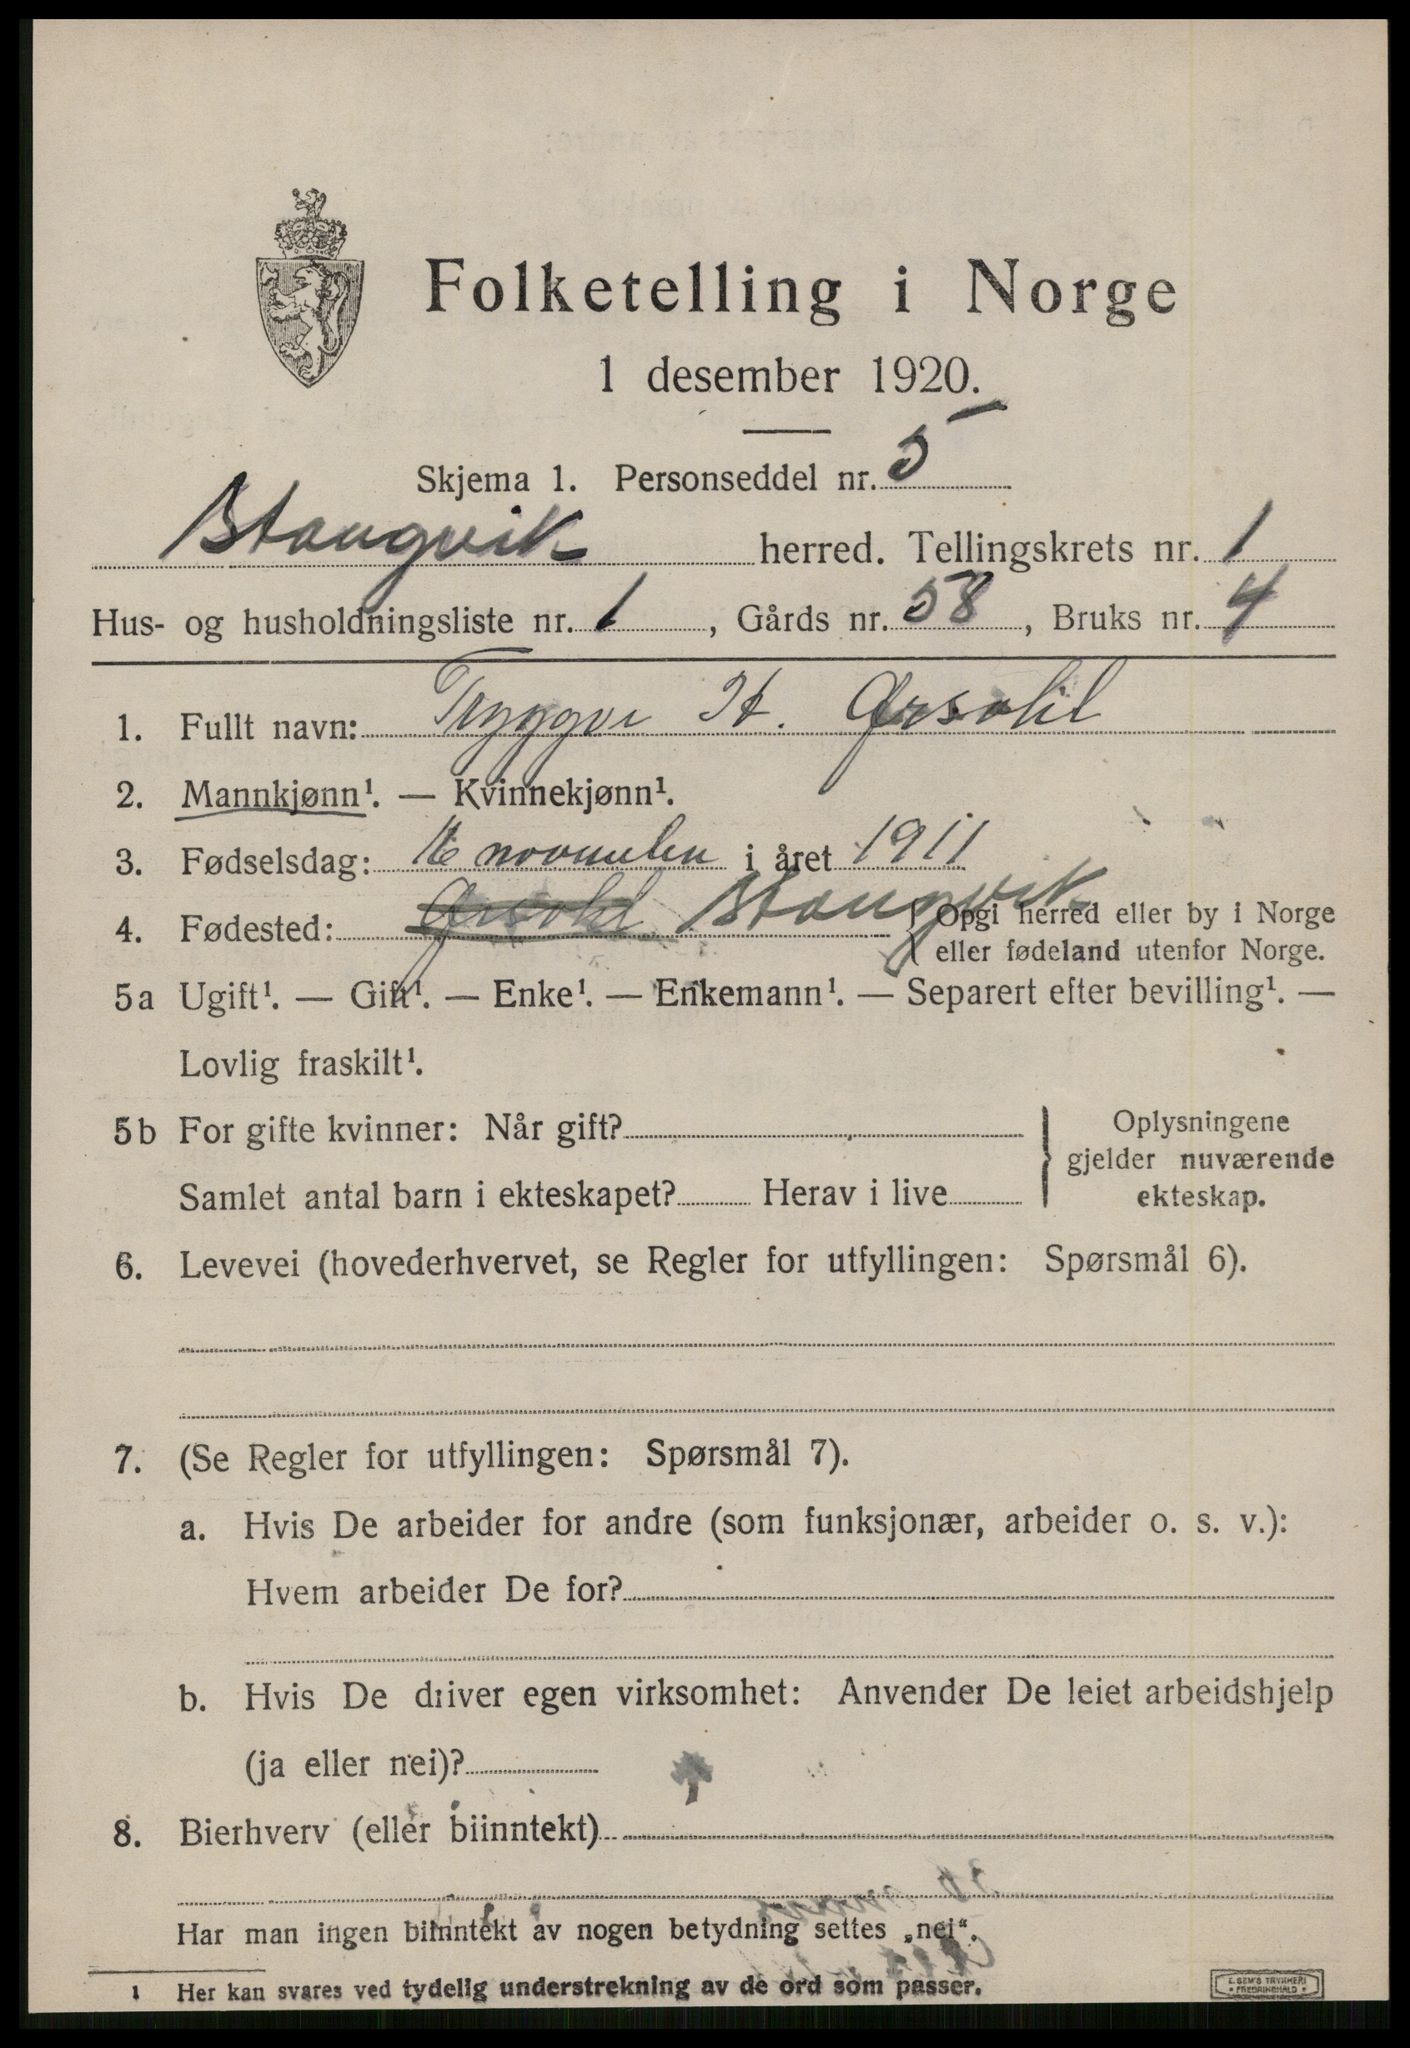 Folketelling i Norge
1 desember 1920.
Skjema 1. Personseddel nr. 5
Stangvik herred. Tellingskrets nr. 1
Hus- og husholdningsliste nr. 1, Gårds nr. 58, Bruks nr. 4
1. Fullt navn: Tryggve H. Ørsahl
2. Mannkjønn¹. — Kvinnekjønn¹.
3. Fødselsdag: 16 november i året 1911
4. Fødested: Ørsahl Stangvik { Opgi herred eller by i Norge
eller fødeland utenfor Norge.
5a Ugift¹. — Gift¹. — Enke¹. — Enkemann¹. — Separert efter bevilling¹. —
Lovlig fraskilt¹.
5b For gifte kvinner: Når gift?
Samlet antal barn i ekteskapet? Herav i live
} Oplysningene
gjelder nuværende
ekteskap.
6. Levevei (hovederhvervet, se Regler for utfyllingen: Spørsmål 6).
7. (Se Regler for utfyllingen: Spørsmål 7).
a. Hvis De arbeider for andre (som funksjonær, arbeider o. s. v.):
Hvem arbeider De for?
b. Hvis De driver egen virksomhet: Anvender De leiet arbeidshjelp
(ja eller nei)?
8. Bierhverv (eller biinntekt)
Har man ingen biinntekt av nogen betydning settes „nei“.
1 Her kan svares ved tydelig understrekning av de ord som passer.
E. SEM'S TRYKKERI
FREDRIKSHALD